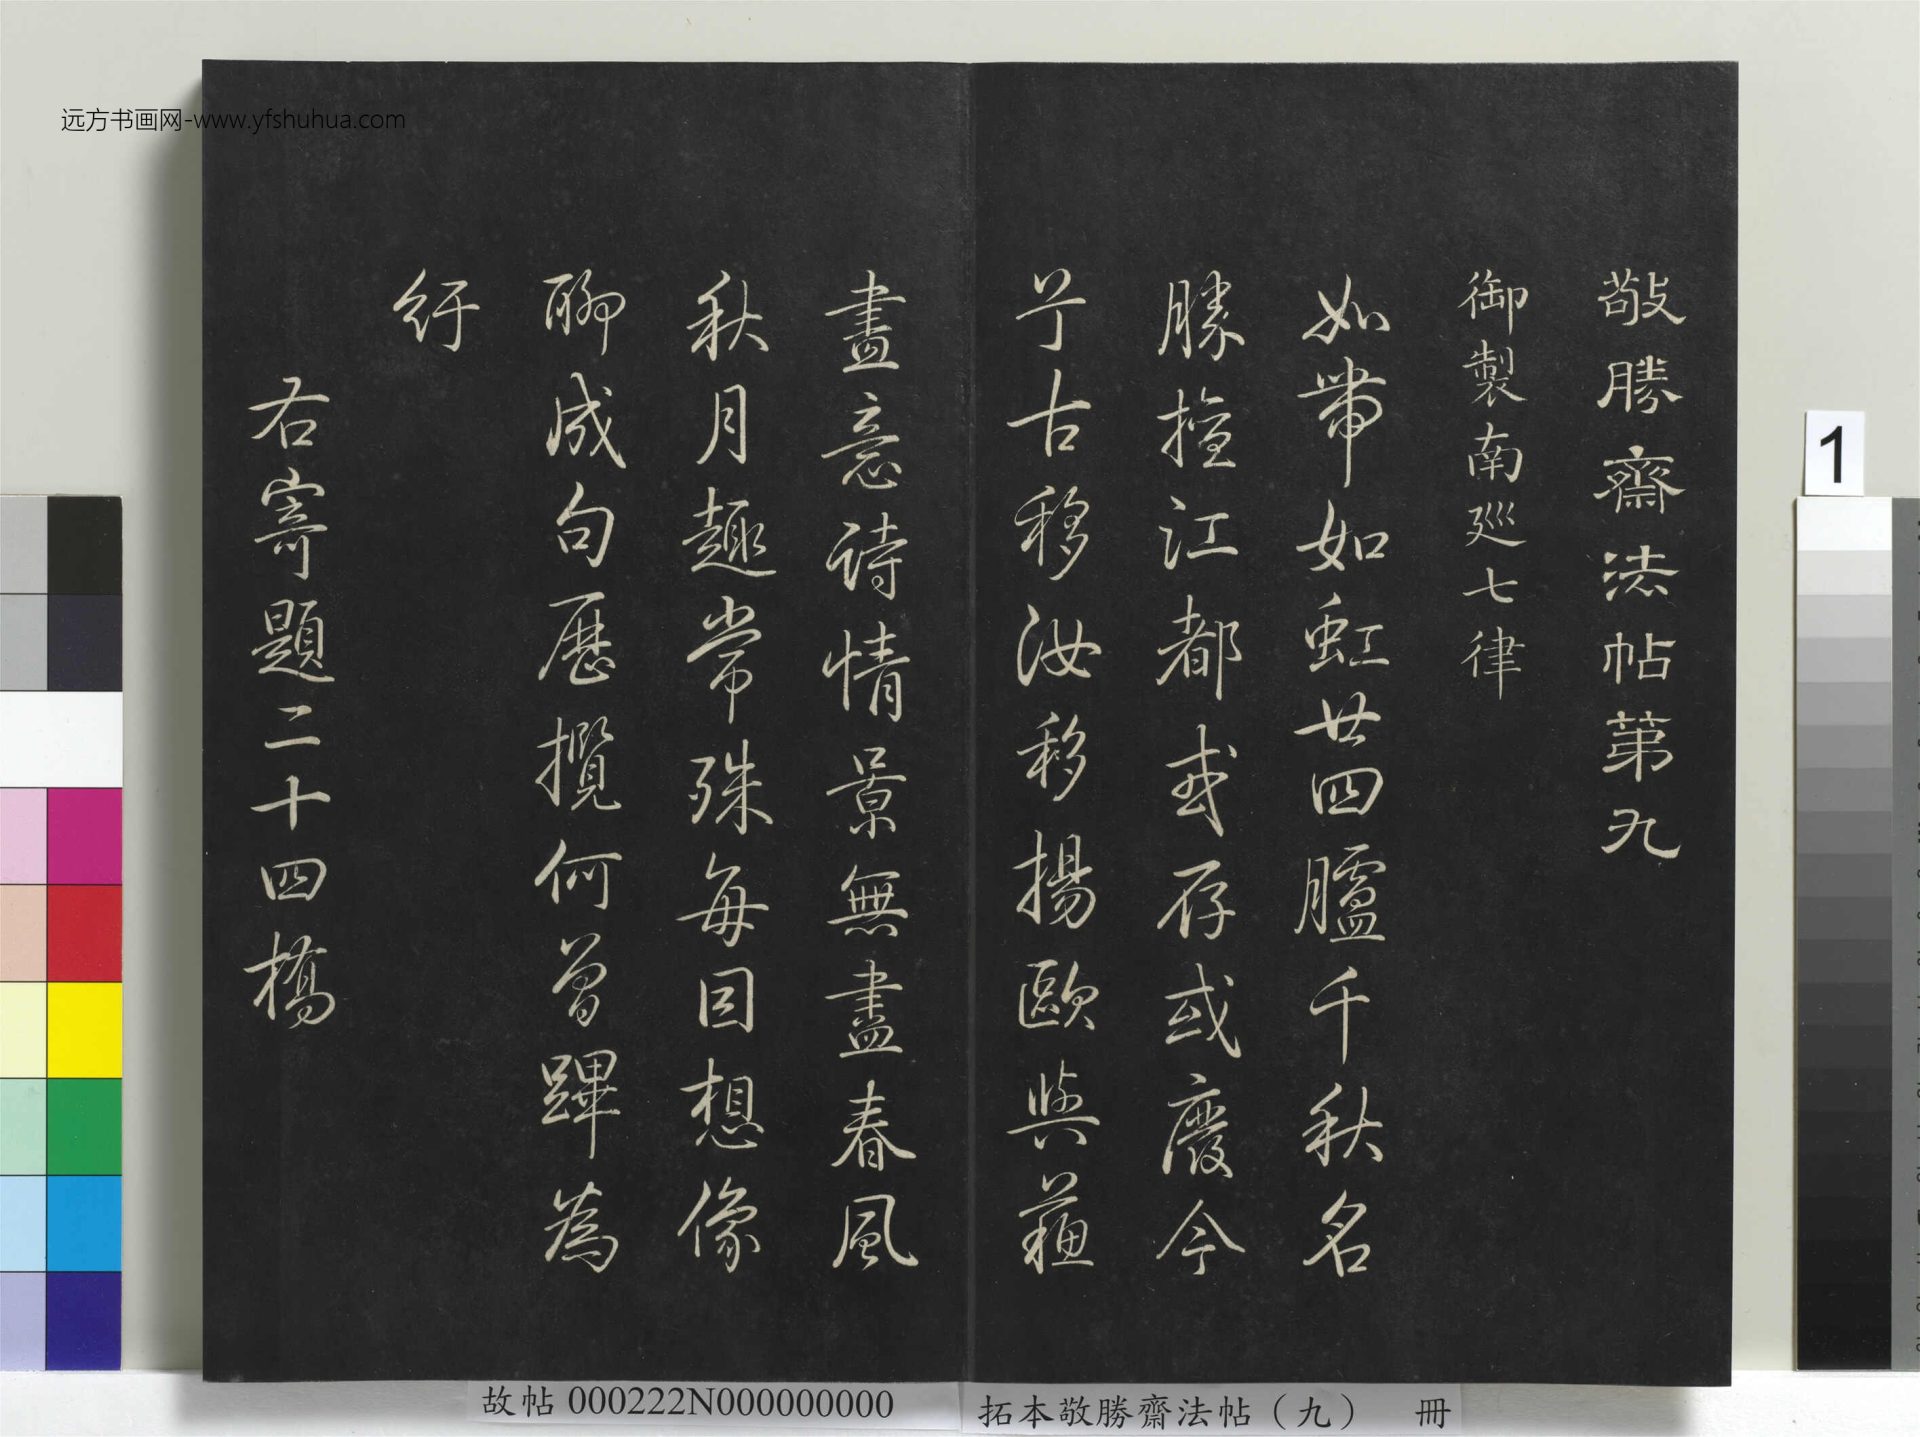 远方书画网-www.yfshuhua.com
敬勝齋法帖第九
御製南廵七律
如帶如虹廿四臚千秋名
勝擅江都或存或廢今
兮古移汝移揚歐與蘓
畫意詩情景無盡春風
秋月趣常殊每因想像
聊成句厯攬何曾蹕為
紆
右寄題二十四橋
1
故帖 000222N000000000
拓本敬勝齋法帖（九） 冊